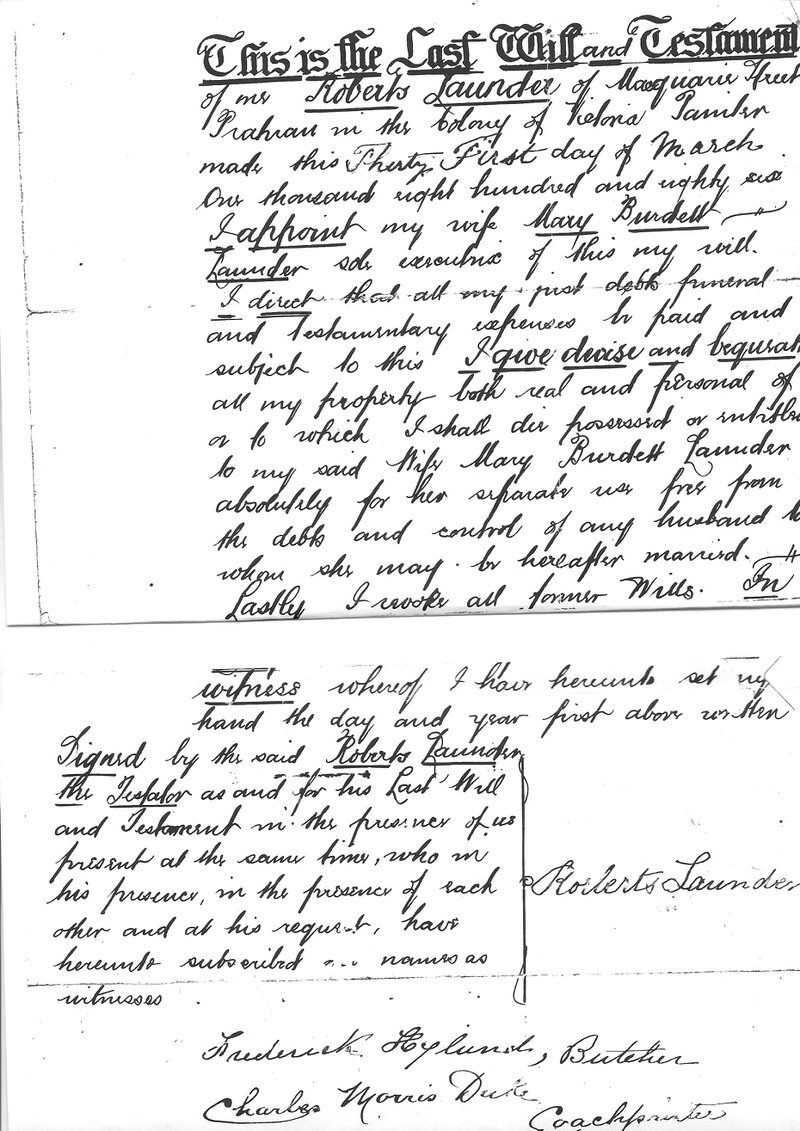 This is the Last Will and Testament
of me Roberts Launder of Macquarie Street
Prahran in the Colony of Victoria Painter
made this Thirty First day of March
One thousand eight hundred and eighty six
I appoint my wife Mary Burdett
Launder sole executrix of this my will.
I direct that all my just debts funeral
and testamentary expenses be paid and
subject to this I give devise and bequeath
all my property both real and personal of
or to which I shall die possessed or entitled
to my said Wife Mary Burdett Launder
absolutely for her separate use free from
the debts and control of any husband to
whom she may be hereafter married.
Lastly I revoke all former Wills. In
witness whereof I have hereunto set my
hand the day and year first above written
Signed by the said Roberts Launder
the Testator as and for his Last Will
and Testament in the presence of us
present at the same time, who in
his presence, in the presence of each
other and at his request, have
hereunto subscribed names as
witnesses
Roberts Launder
Frederick Butcher
Charles Morris Duke